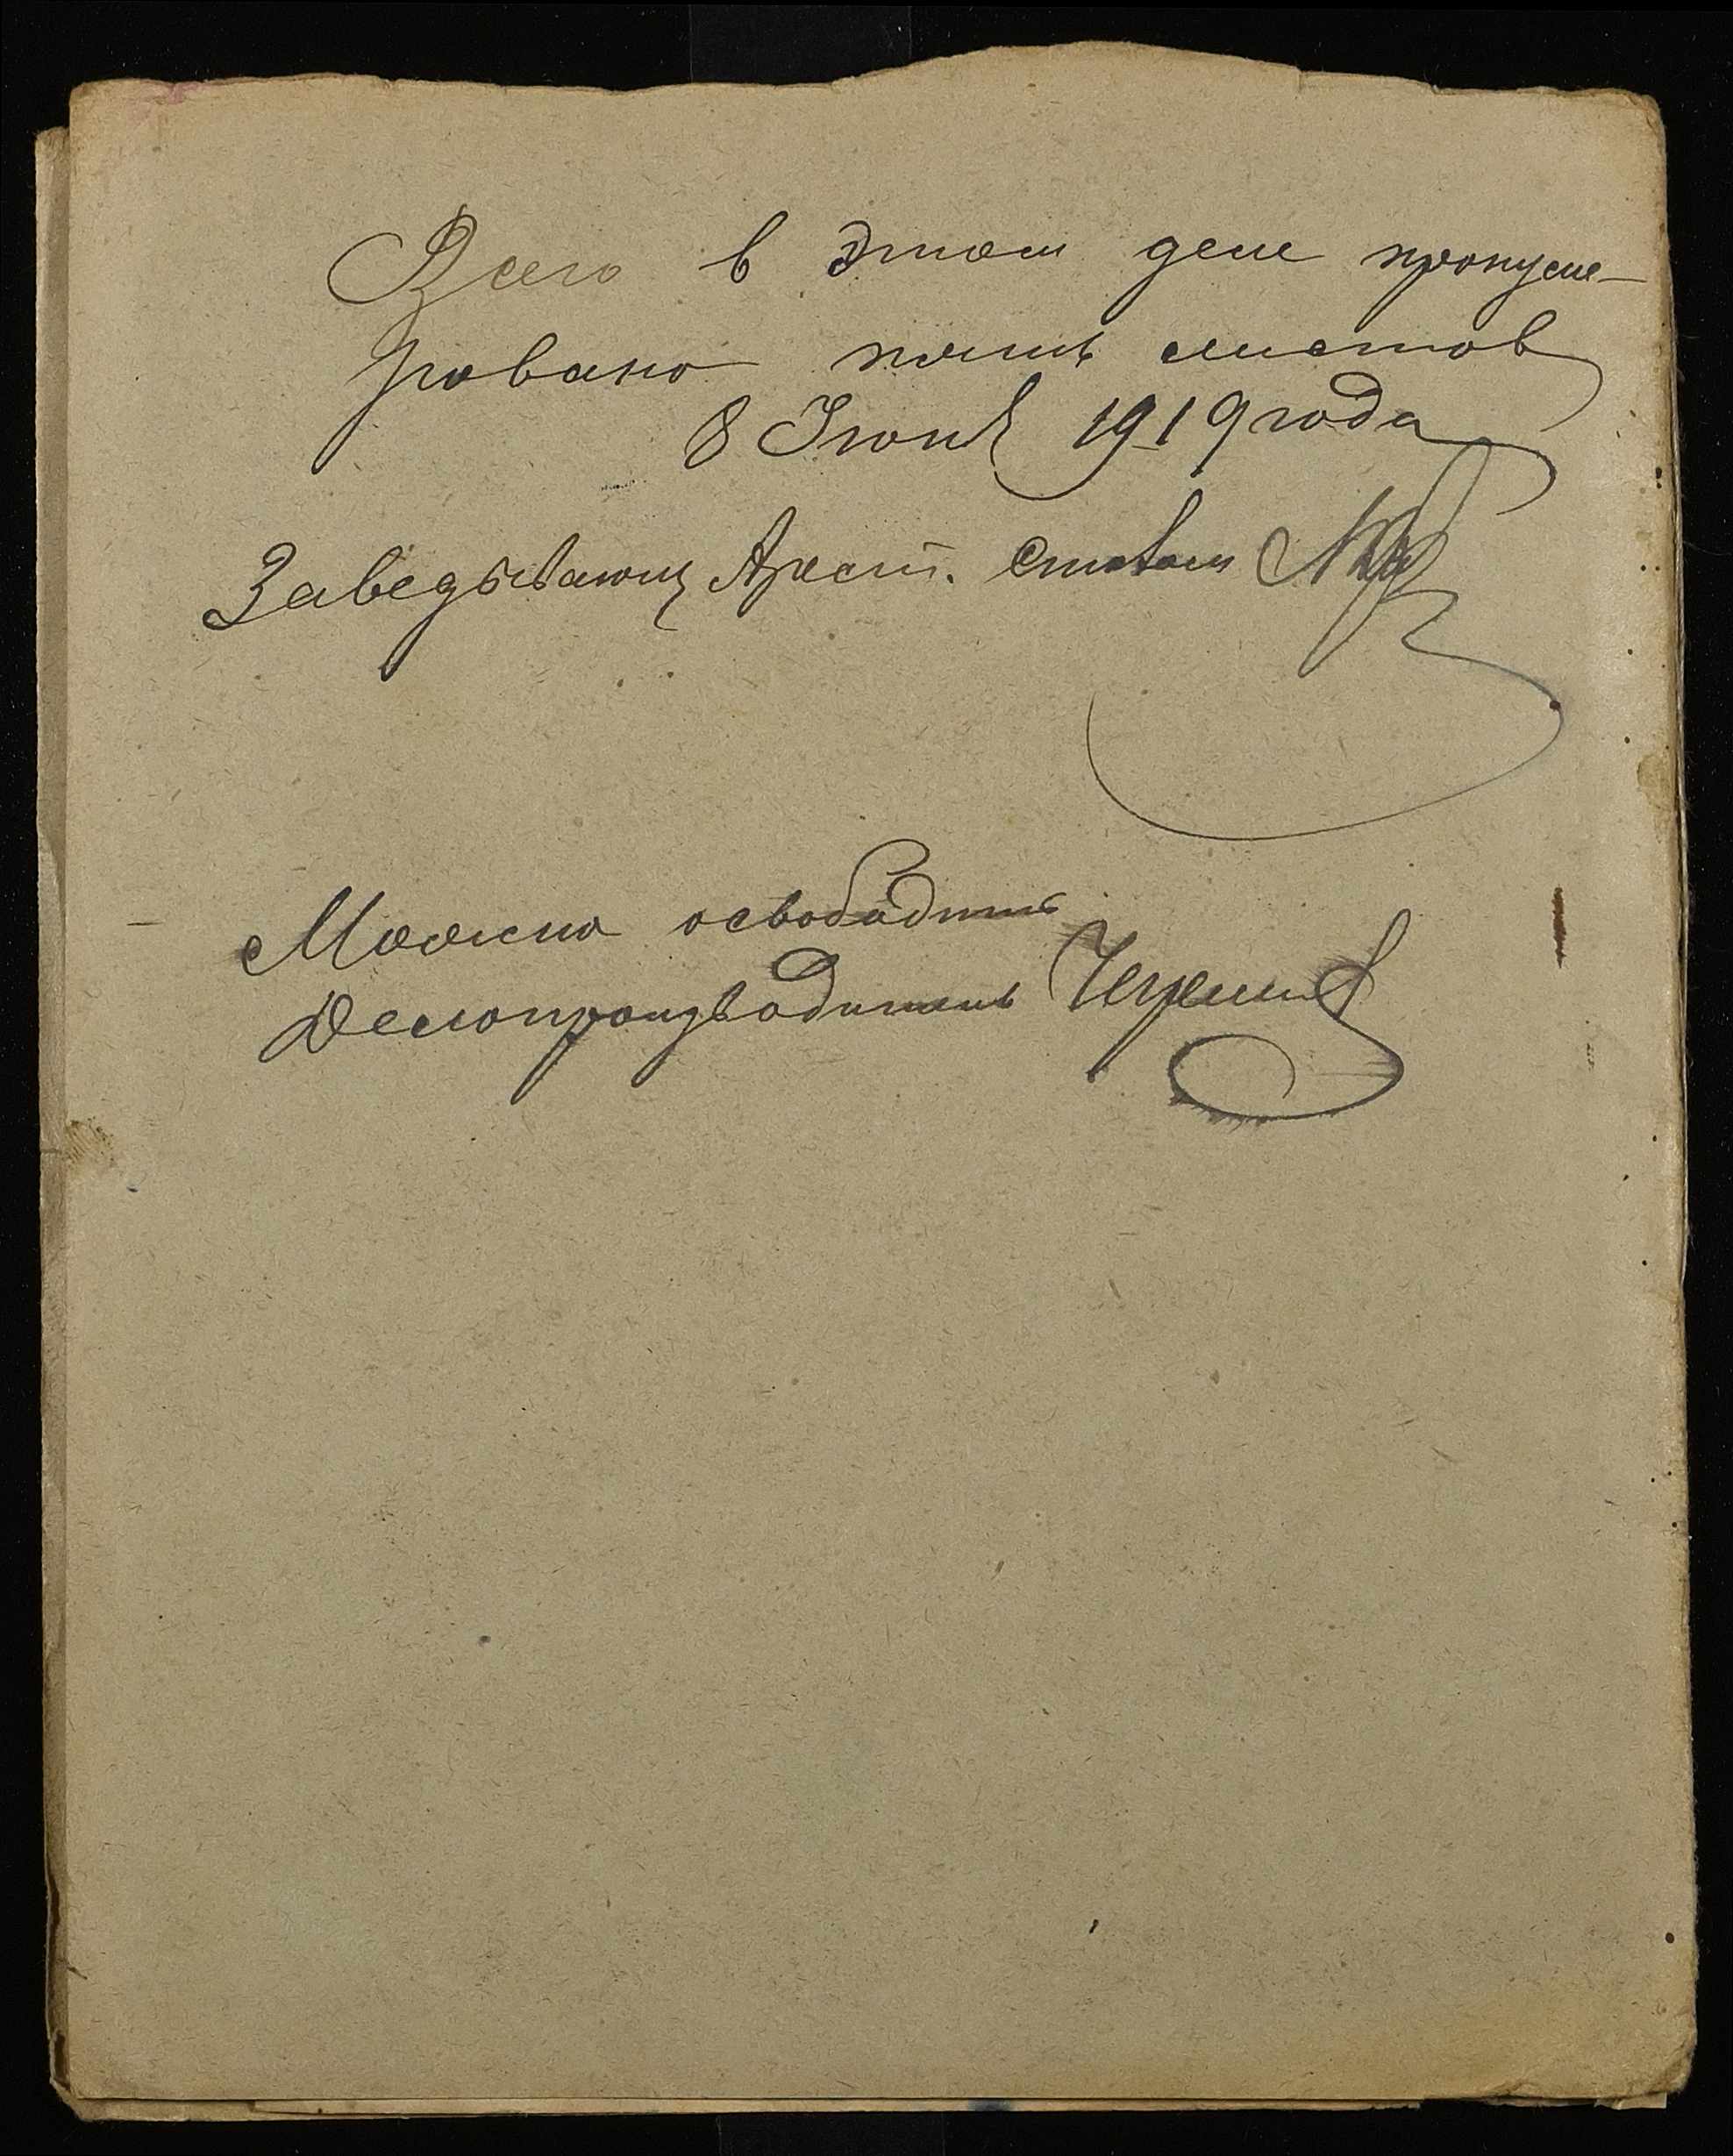 Всего в этом деле пронуме-
ровано пять листов
8 Июня 1919 года
Заведывающ Арест. столом
Можно освободить
Делопроизводитель